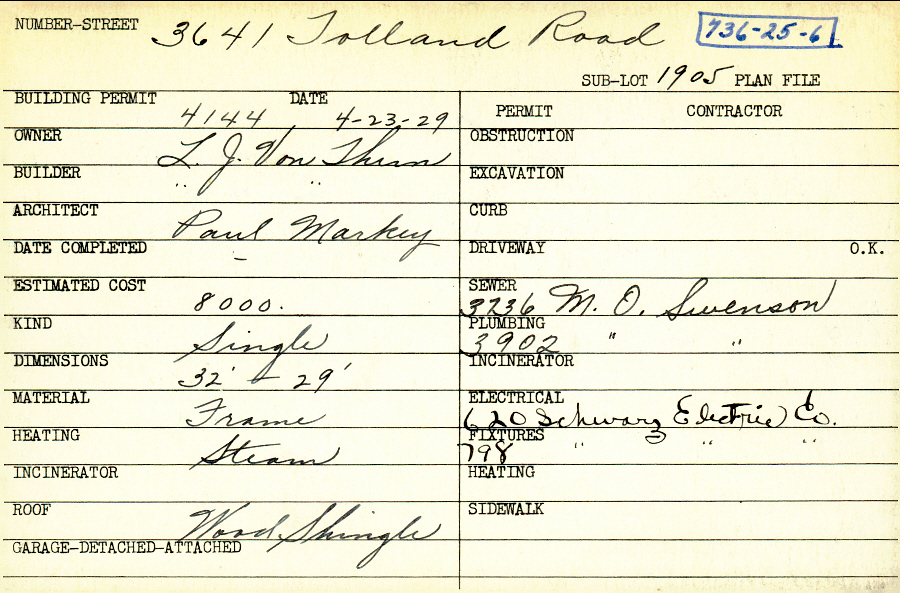 NUMBER-STREET 3641 Tolland Road 736-25-6
SUB-LOT 1905 PLAN FILE
BUILDING PERMIT 4144 DATE 4-23-29
PERMIT CONTRACTOR
OWNER L. J. Von Thurn
OBSTRUCTION
BUILDER " "
EXCAVATION
ARCHITECT Paul Markey
CURB
DATE COMPLETED -
DRIVEWAY O.K.
ESTIMATED COST 8000.
SEWER 3236 M. O. Swenson
KIND Single
PLUMBING 3902 " "
DIMENSIONS 32' - 29'
INCINERATOR
MATERIAL Frame
ELECTRICAL 620 Schwarz Electric Co.
HEATING Steam
FIXTURES 798 " " "
INCINERATOR
HEATING
ROOF Wood Shingle
SIDEWALK
GARAGE-DETACHED-ATTACHED